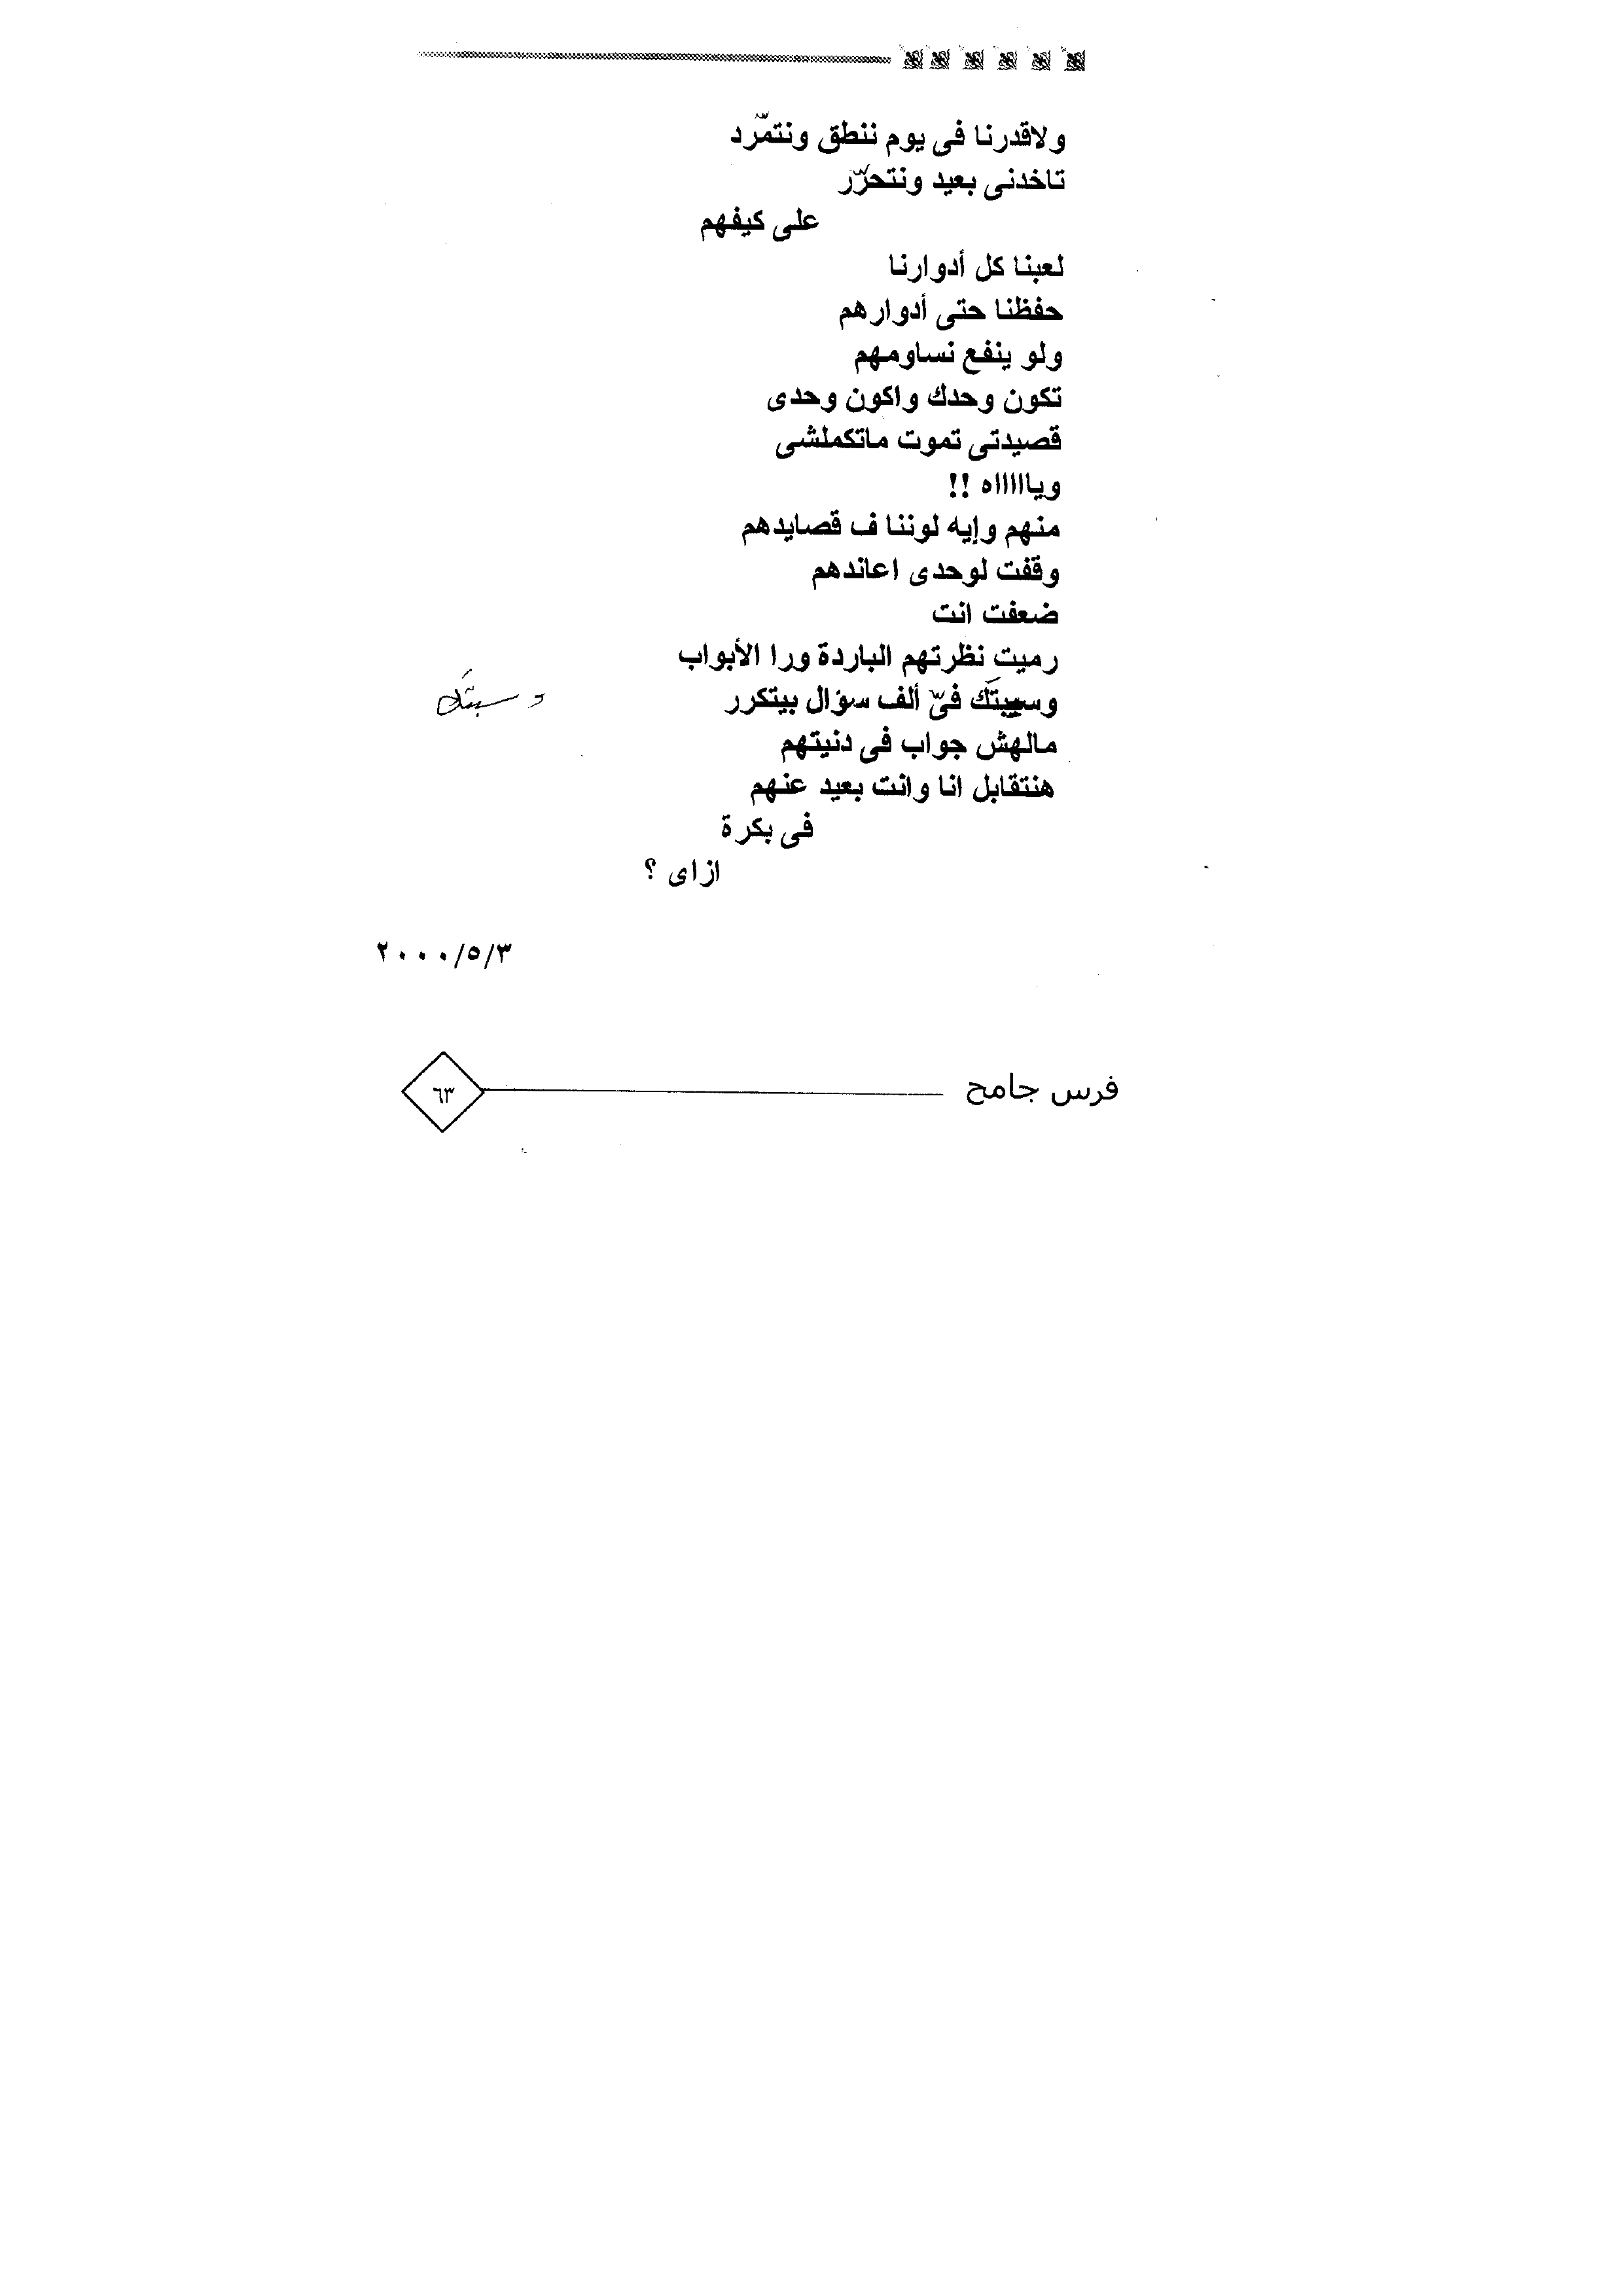 ولاقدرنا فى يوم ننطق ونتمّرد
تاخدنى بعيد ونتحرّر
على كيفهم
لعبنا كل أدوارنا
حفظنا حتى أدوارهم
ولو ينفع نساومهم
تكون وحدك واكون وحدى
قصيدتى تموت ماتكملشى
ويااااااه !!
منهم وإيه لوننا ف قصايدهم
وقفت لوحدى اعاندهم
ضعفت انت
رميت نظرتهم الباردة ورا الأبواب
وسيبتَك فىّ ألف سؤال بيتكرر
وسبتَك
مالهش جواب فى دنيتهم
هنتقابل انا وانت بعيد عنهم
فى بكرة
ازاى ؟
٢٠٠٠/٥/٣
فرس جامح
٦٣